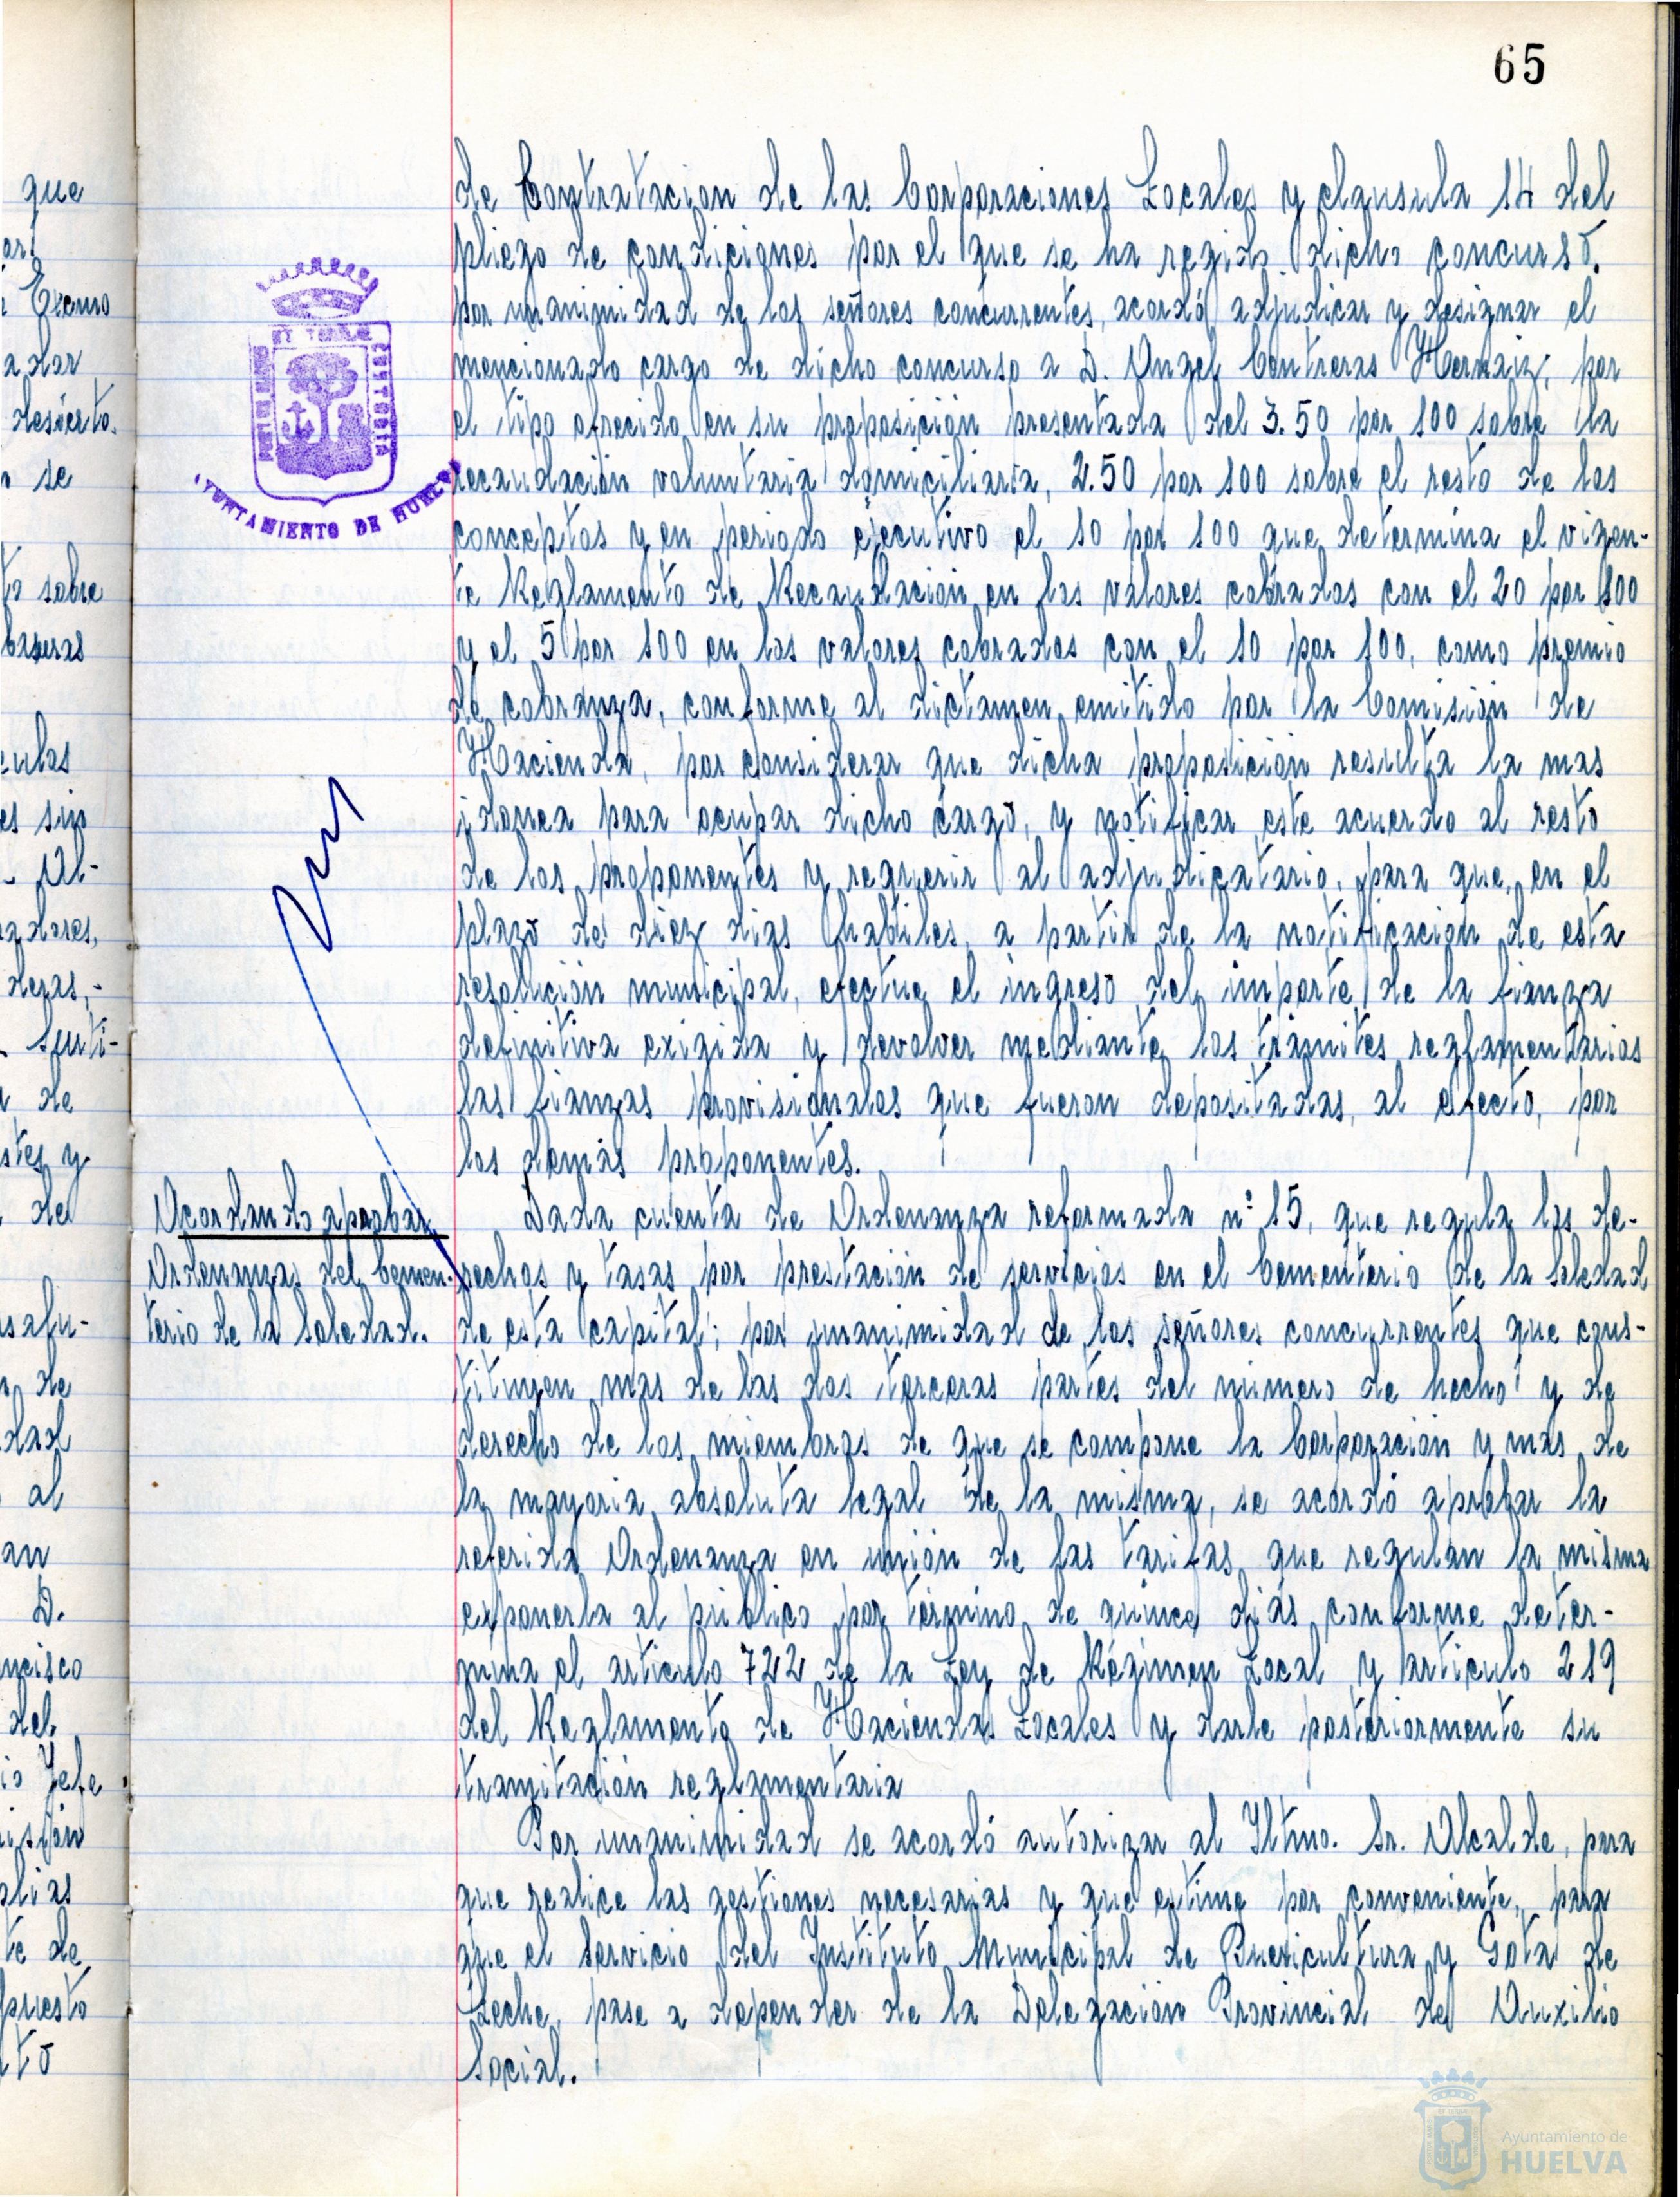 65
de Contratacion de las Corporaciones Locales y clausula 14 del
pliego de condiciones por el que se ha regido dicho concurso.
por unanimidad de los señores concurrentes, acordó adjudicar y designar el
mencionado cargo de dicho concurso a D. Angel Contreras Hernaiz, por
el tipo ofrecido en su proposición presentada del 3.50 por 100 sobre la
recaudación voluntaria domiciliaria, 2.50 por 100 sobre el resto de los
conceptos y en periodo ejecutivo el 10 por 100 que determina el vigen-
te Reglamento de Recaudación en los valores cobrados con el 20 por 100
y el 5 por 100 en los valores cobrados con el 10 por 100, como premio
de cobranza, conforme al dictamen emitido por la Comisión de
Hacienda, por considerar que dicha proposicion resulta la mas
idonea para ocupar dicho cargo, y notificar este acuerdo al resto
de los proponentes y requerir al adjudicatario, para que, en el
plazo de diez dias habiles, a partir de la notificación de esta
resolución municipal, efectue el ingreso del importe de la fianza
definitiva exigida y devolver mediante los trámites reglamentarios
las fianzas provisionales que fueron depositadas, al efecto, por
los demás proponentes.
Acordando aprobar
Ordenanzas del Cemen-
terio de la Soledad.
Dada cuenta de Ordenanza reformada nº 15, que regula los de-
rechos y tasas por prestación de servicios en el Cementerio de la Soledad
de esta capital; por unanimidad de los señores concurrentes que cons-
tituyen mas de las dos terceras partes del número de hecho y de
derecho de los miembros de que se compone la Corporación y mas de
la mayoria absoluta legal de la misma, se acordó aprobar la
referida Ordenanza en unión de las tarifas que regulan la misma
exponerla al publico por término de quince dias conforme deter-
mina el articulo 722 de la Ley de Régimen Local y articulo 219
del Reglamento de Haciendas Locales y darle posteriormente su
tramitación reglamentaria
Por unanimidad se acordó autorizar al Iltmo. Sr. Alcalde, para
que realice las gestiones necesarias y que estime por conveniente, para
que el Servicio del Instituto Municipal de Puericultura y Gota de
Leche, pase a depender de la Delegación Provincial de Auxilio
Social.
AYUNTAMIENTO DE HUELVA
que
Excmo
a dar
desierto.
se
sobre
basuras
culas
es sin
Al-
adores,
deras,-
Suti-
de
stes y
de
salu-
de
dad
al
an
D.
ncisco
del
Jefe
isión
alias
te de
puesto
nto
Ayuntamiento de
HUELVA